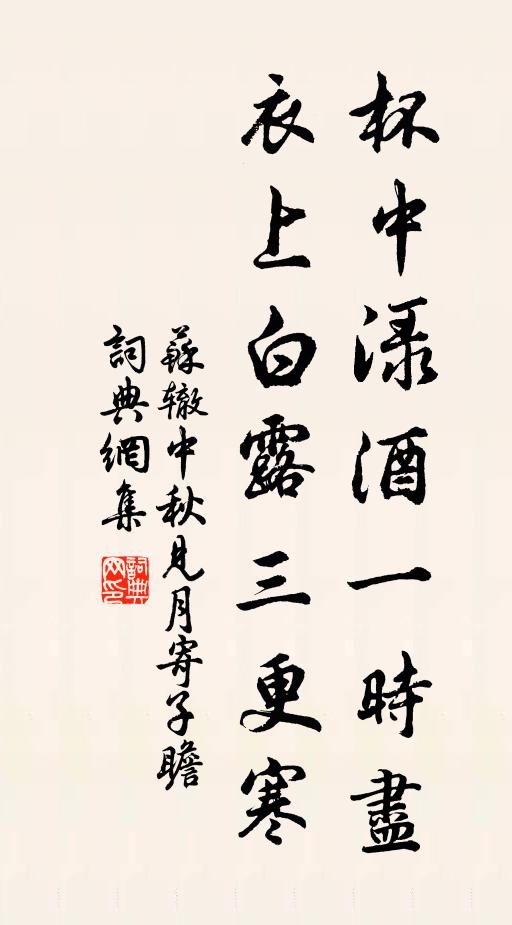 杯中渌酒一時盡
衣上白露三更寒
蘇辙中秋見月寄子瞻
詞典網集
詞典网印